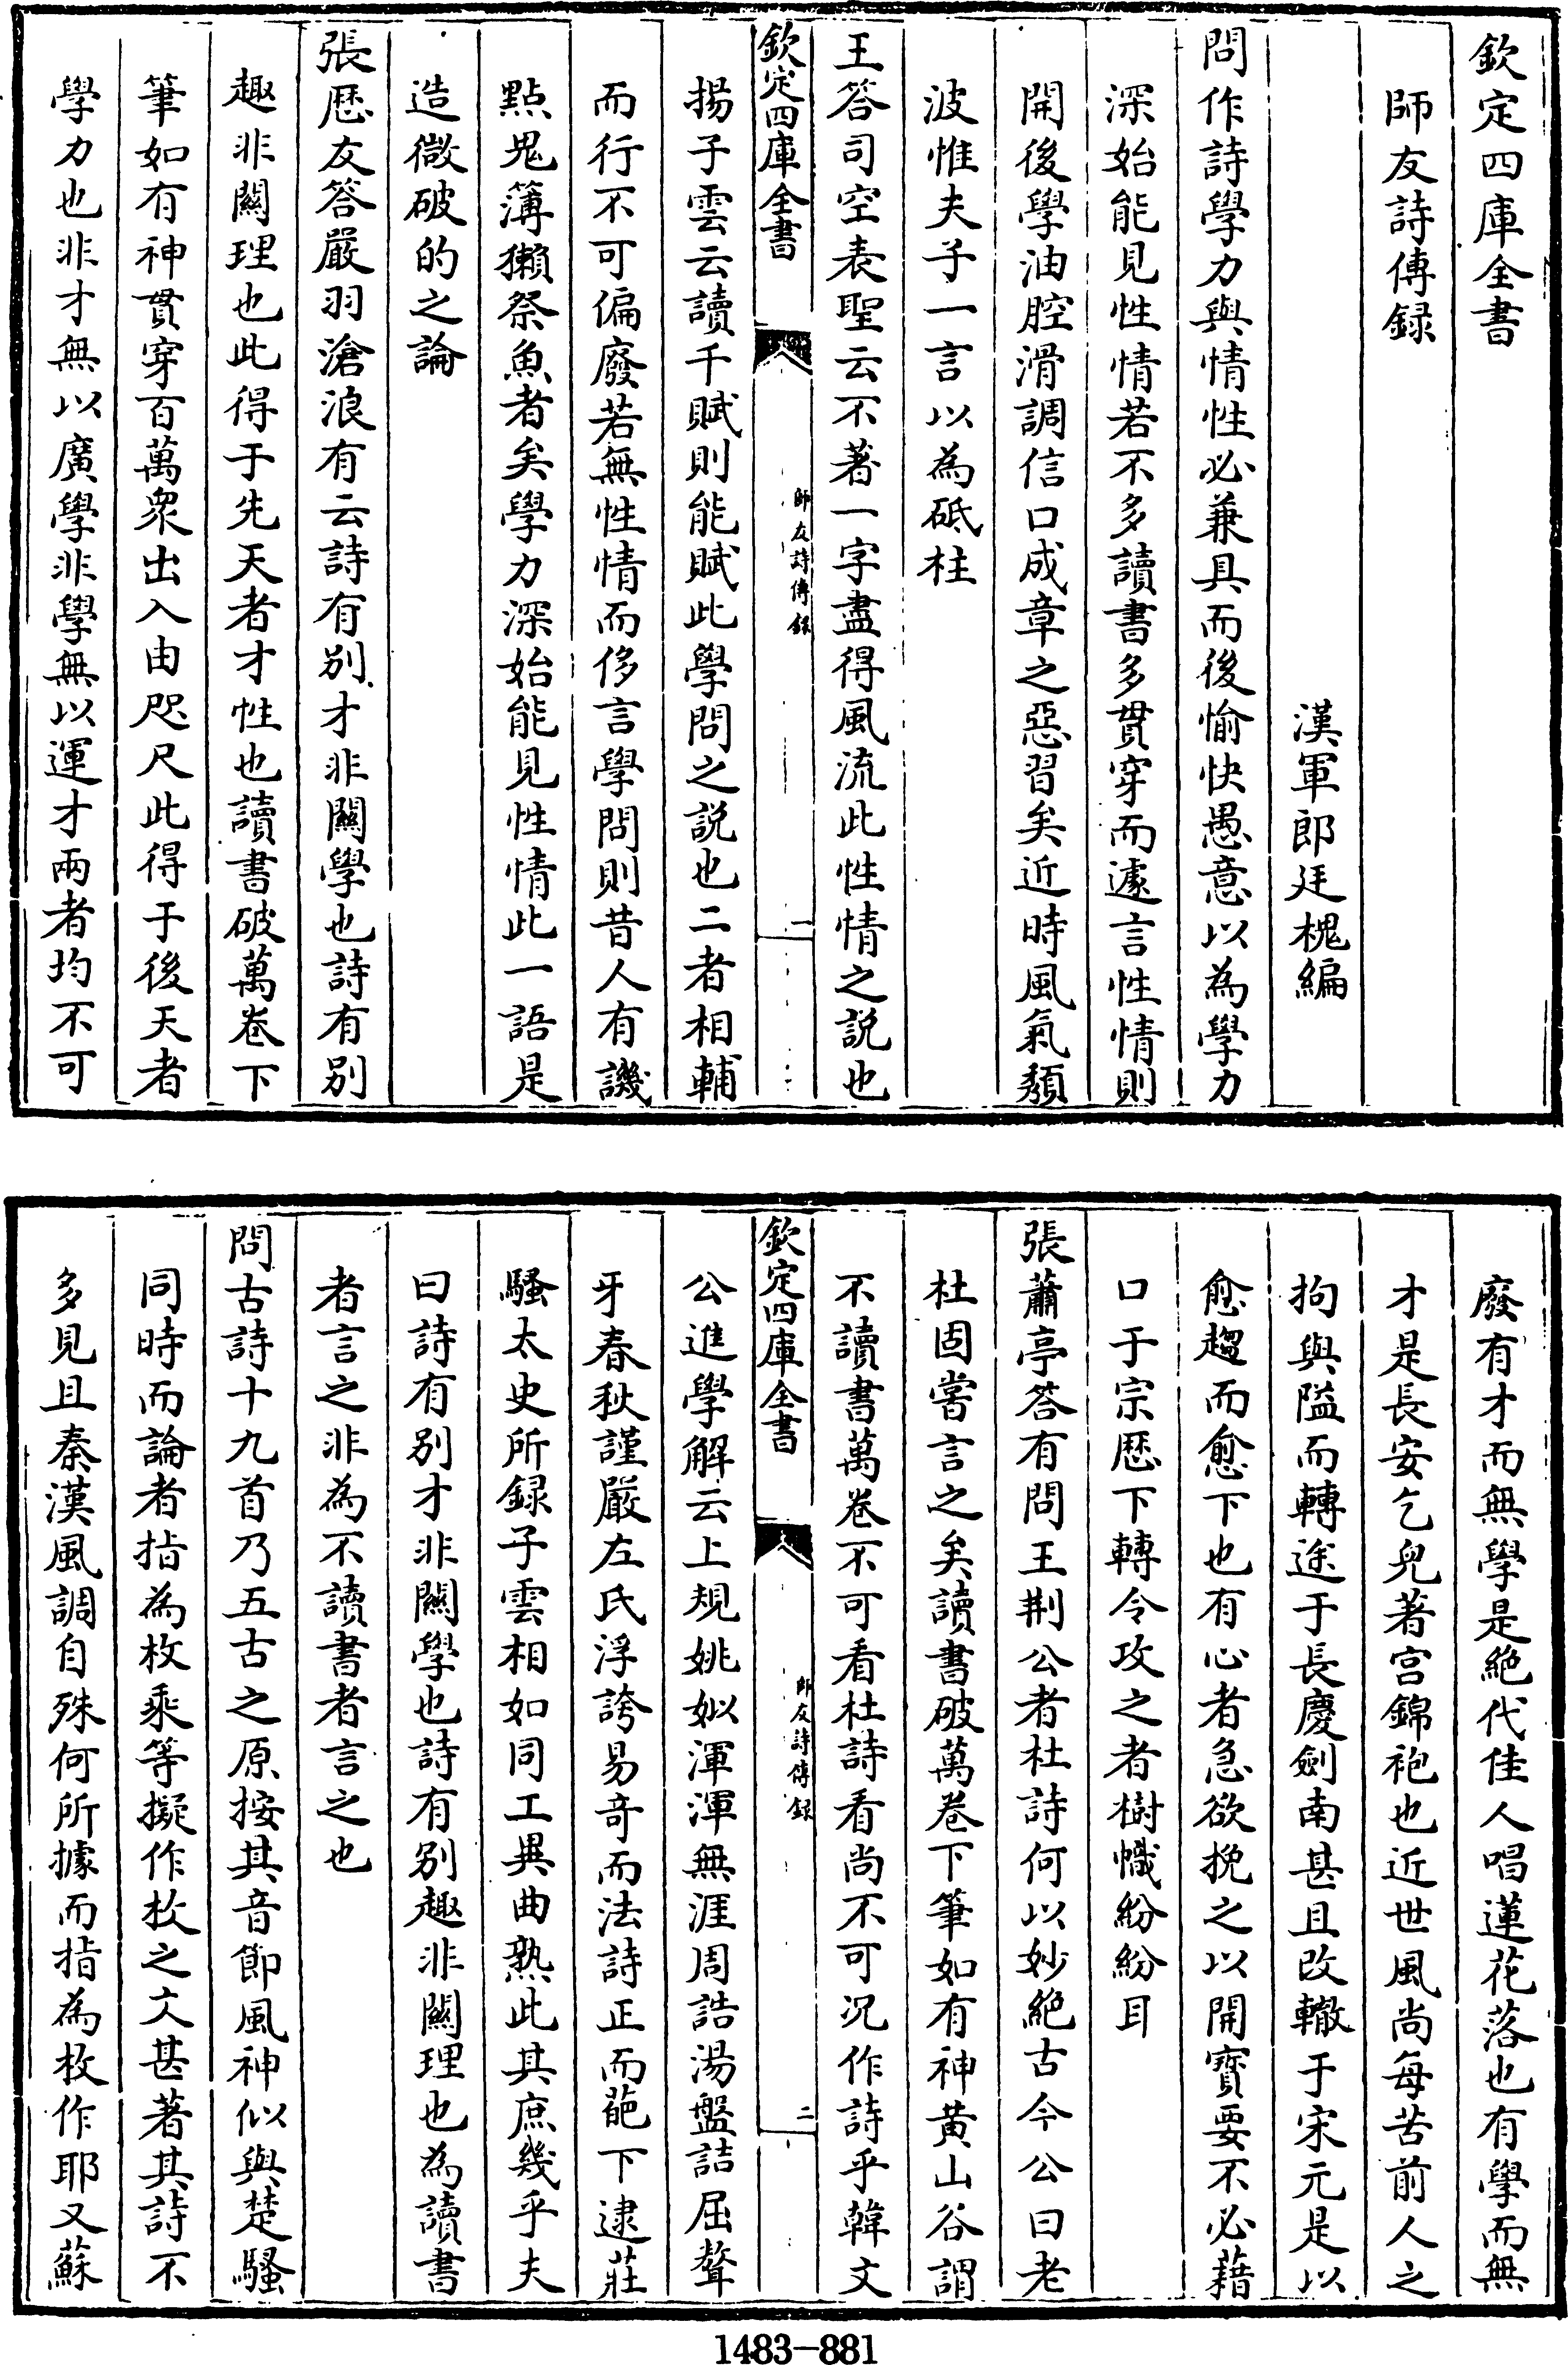 欽定四庫全書
師友詩傳録
漢軍郎廷槐編
問作詩學力與情性必兼具而後愉快愚意以為學力
深始能見性情若不多讀書多貫穿而遽言性情則
開後學油腔滑調信口成章之惡習矣近時風氣頽
波惟夫子一言以為砥柱
王答司空表聖云不著一字盡得風流此性情之説也
欽定四庫全書
師友詩傳録
一
揚子雲云讀千賦則能賦此學問之説也二者相輔
而行不可偏廢若無性情而侈言學問則昔人有譏
點鬼簿獺祭魚者矣學力深始能見性情此一語是
造微破的之論
張歴友答嚴羽滄浪有云詩有别才非闗學也詩有别
趣非闗理也此得于先天者才性也讀書破萬卷下
筆如有神貫穿百萬衆出入由咫尺此得于後天者
學力也非才無以廣學非學無以運才兩者均不可
廢有才而無學是絶代佳人唱蓮花落也有學而無
才是長安乞兒著宫錦袍也近世風尚每苦前人之
拘與隘而轉途于長慶劍南甚且改轍于宋元是以
愈趨而愈下也有心者急欲挽之以開寶要不必藉
口于宗歴下轉令攻之者樹幟紛紛耳
張蕭亭答有問王荆公者杜詩何以妙絶古今公曰老
杜固嘗言之矣讀書破萬卷下筆如有神黄山谷謂
不讀書萬卷不可看杜詩看尚不可况作詩乎韓文
欽定四庫全書
師友詩傳録
二
公進學解云上規姚姒渾渾無涯周誥湯盤詰屈聱
牙春秋謹嚴左氏浮誇易奇而法詩正而葩下逮莊
騷太史所録子雲相如同工異曲熟此其庶幾乎夫
曰詩有别才非闗學也詩有别趣非闗理也為讀書
者言之非為不讀書者言之也
問古詩十九首乃五古之原按其音節風神似與楚騷
同時而論者指為枚乘等擬作枚之文甚著其詩不
多見且秦漢風調自殊何所據而指為枚作耶又蘇
1483-881